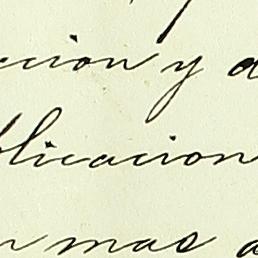 ccion y d
blicacion
n mas a